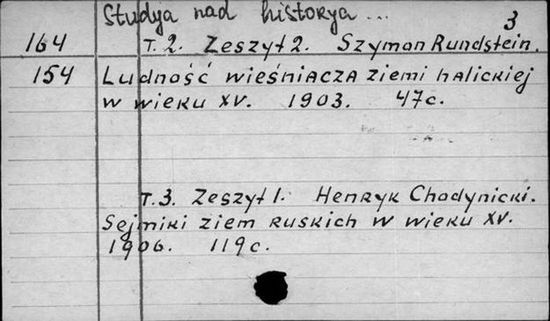 Studya nad historya ... 3
164 T. 2. Zeszyt 2. Szymon Rundstein.
154 Ludność wieśniacza ziemi halickiej
w wieku XV. 1903. 47c.
T. 3. Zeszyt 1. Henryk Chodynicki.
Sejmiki ziem ruskich w wieku XV.
1906. 119c.